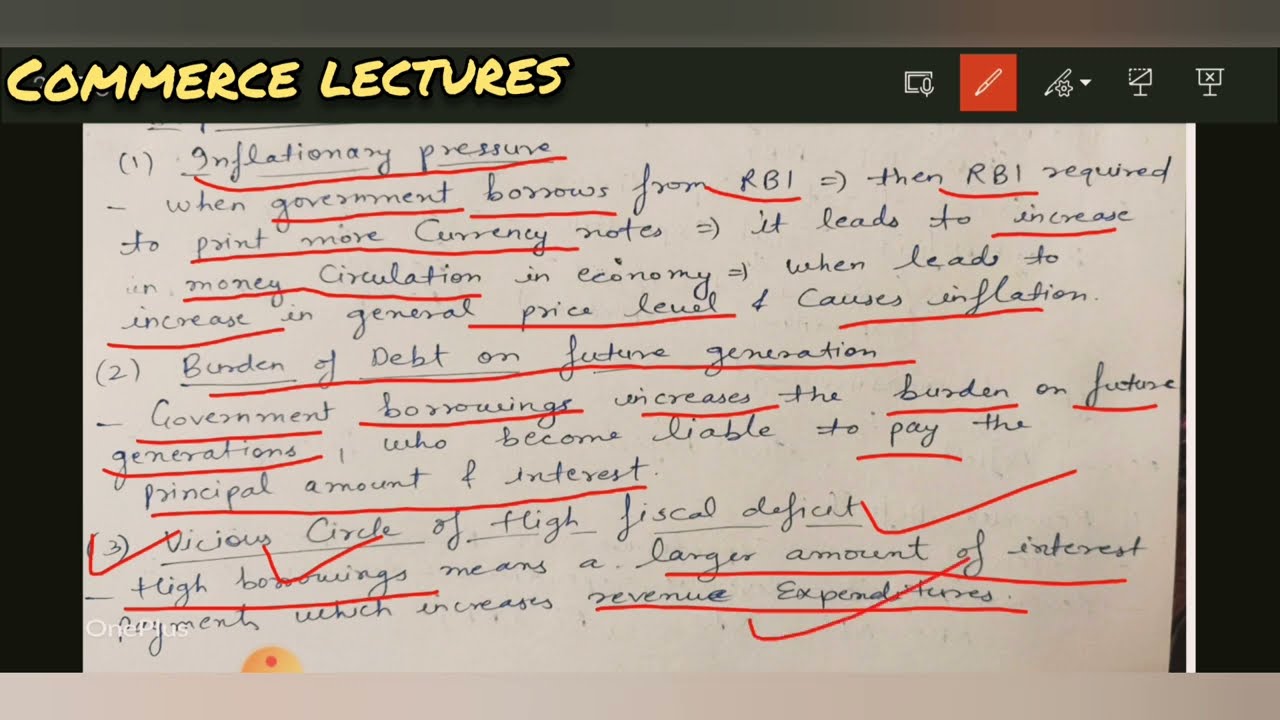 COMMERCE LECTURES
(1) Inflationary pressure
- when government borrows from RBI => then RBI required
to print more Currency notes => it leads to increase
in money Circulation in economy => when leads to
increase in general price level & Causes inflation.
(2) Burden of Debt on future generation
- Government borrowings increases the burden on future
generations, who become liable to pay the
principal amount & interest.
(3) Vicious Circle of High fiscal deficit
- High borrowings means a larger amount of interest
payments which increases revenue Expenditures.
OnePlus